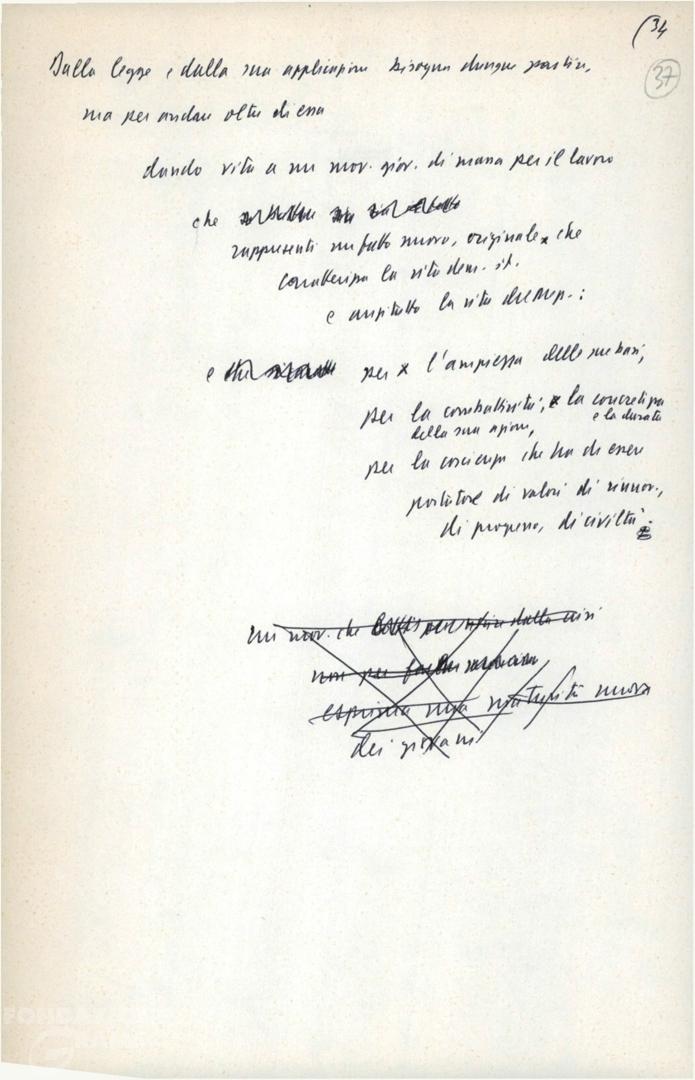 (34
37
Dalla legge e dalla sua applicazione bisogna dunque partire,
ma per andare oltre di essa
dando vita a un mov. giov. di massa per il lavoro
che
rappresenti un fatto nuovo, originale che
caratterizza la vita dem. it.
e anzitutto la vita del Mezz.:
e per l'ampiezza delle sue basi,
per la combattività, la concretezza
e la durata
della sua azione,
per la coscienza che ha di essere
portatore di valori di rinnov.,
di progresso, di civiltà.
un mov. che dalla crisi
non per
esprima una maturità nuova
dei giovani